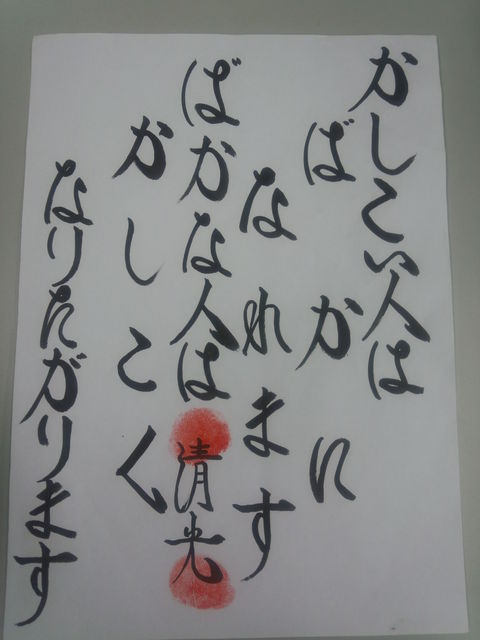 かしこい人は
ばかに
なれます
ばかな人は
かしこく
なりたがります
清光